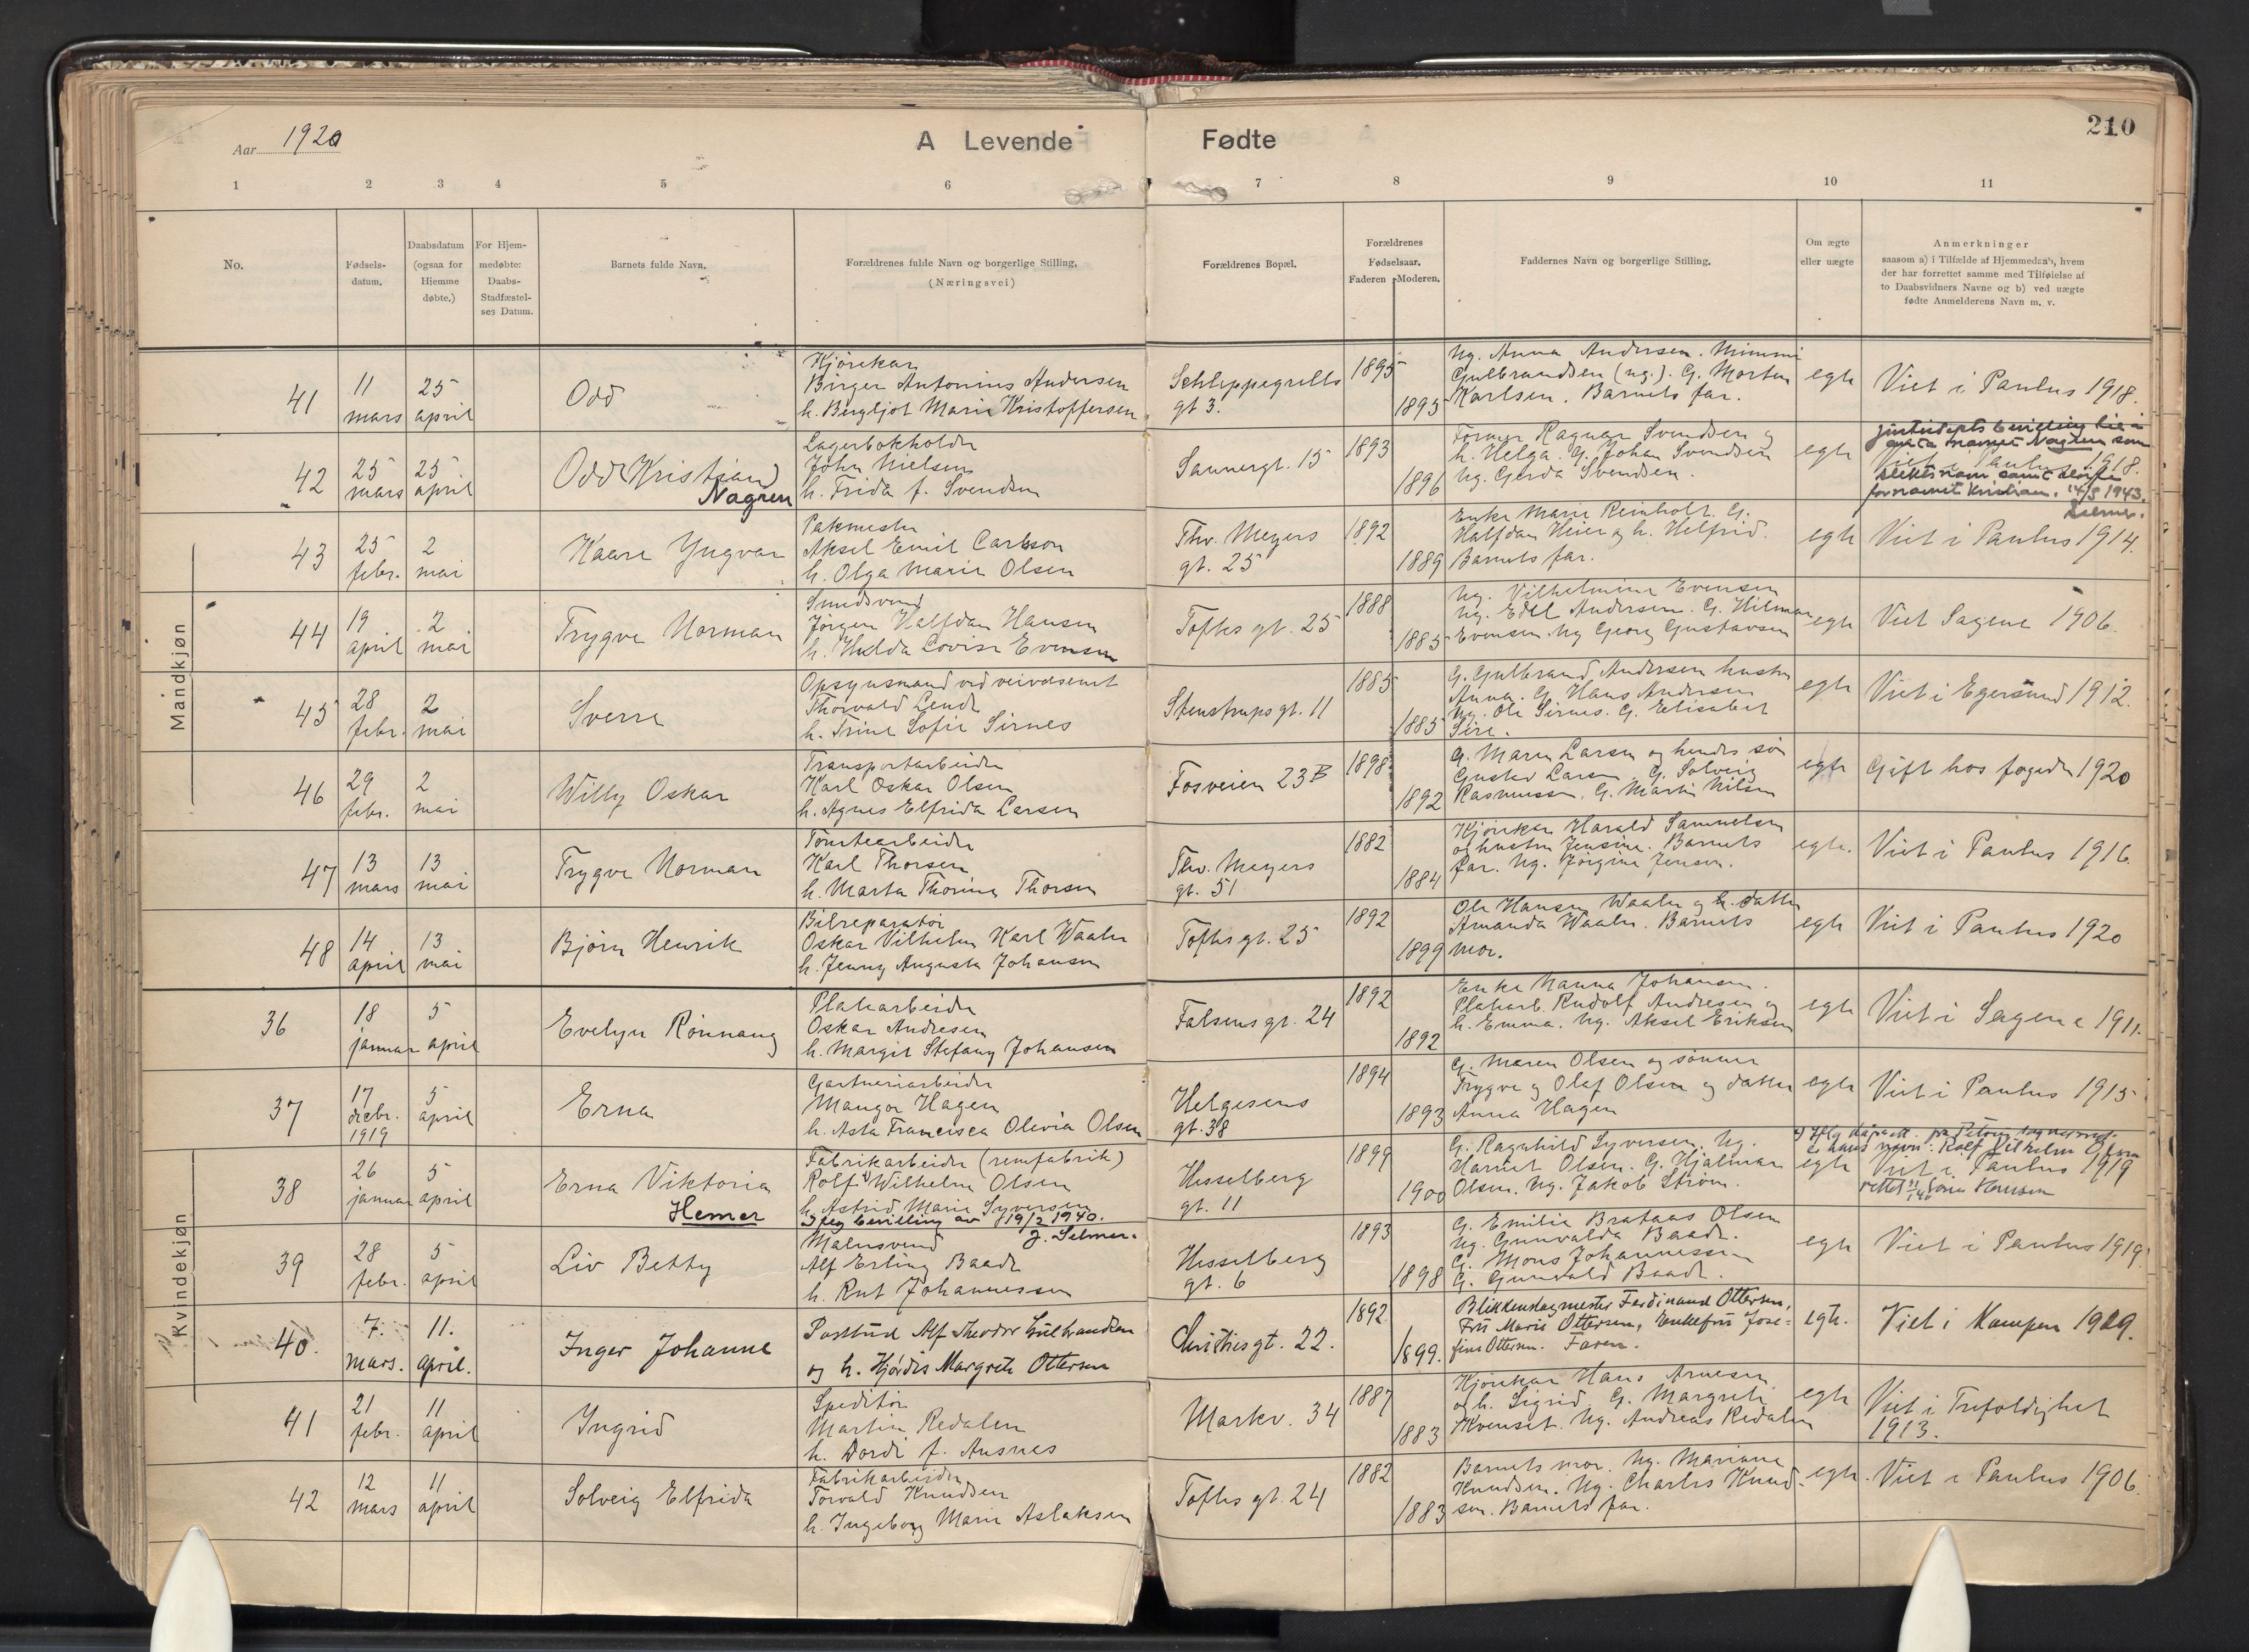 Aar 1920
A Levende Fødte
210
1 2 3 4 5 6 7 8 9 10 11
No.
Fødsels-
datum.
Daabsdatum
(ogsaa for
Hjemme
døbte.)
For Hjem-
medøbte:
Daabs-
Stadfæstel-
ses Datum.
Barnets fulde Navn.
Forældrenes fulde Navn og borgerlige Stilling.
(Næringsvei)
Forældrenes Bopæl.
Forældrenes
Fødselsaar.
Faderen Moderen.
Faddernes Navn og borgerlige Stilling.
Om ægte
eller uægte
Anmerkninger
saasom a) i Tilfælde af Hjemmedaab, hvem
der har forrettet samme med Tilføielse af
to Daabsvidners Navne og b) ved uægte
fødte Anmelderens Navn m. v.
Mandkjøn
41
11
mars
25
april
Odd
Kjørekar
Birger Antonius Andersen
h. Bergljot Marie Kristoffersen
Schleppegrells
gt 3.
1895
1895
Ug. Anna Andersen. Mimmi
Gulbrandsen (ug.). G. Morten
Karlsen. Barnets far.
egte
Viet i Paulus 1918.
42
25
mars
25
april
Odd Kristian
Nagren
Lagerbokholder
John Nielsen
h. Frida f. Svendsen
Sannergt. 15
1893
1896
Former Ragnar Svendsen og
h. Helga. G. Johan Svendsen
Ug. Gerda Svendsen.
egte
justisdepts bevilling til å
anta navnet Nagren som
Viet i Paulus 1918.
slektsnavn samt sløife
fornavnet Kristian. 14/5 1943.
Selmer.
43
25
febr.
2
mai
Kaare Yngvar
Pakmester
Aksel Emil Carlsson
h. Olga Marie Olsen
Thv. Meyers
gt. 25
1892
1889
Enke Marie Reinholt. G.
Halfdan Heier og h. Helfrid.
Barnets far.
egte
Viet i Paulus 1914.
44
19
april
2
mai
Trygve Norman
Smedsvend
Jørgen Halfdan Hansen
h. Hulda Lovise Evensen
Toftes gt. 25
1888
1885
Ug. Vilhelmine Evensen
Ug. Edel Andersen. G. Hilmar
Evensen. Ug Georg Gustavsen
egte
Viet Sagene 1906.
45
28
febr.
2
mai
Sverre
Opsynsmand ved veivæsenet
Thorvald Lende
h. Trine Sofie Sirnes
Stenstrups gt. 11
1885
1885
G. Gulbrand Andersen hustru
Anna. G. Hans Andersen
Ug. Ole Sirnes. G. Elisabet
Sire.
egte
Viet i Egersund 1912.
46
29
febr.
2
mai
Willy Oskar
Transportarbeider
Karl Oskar Olsen
h. Agnes Elfrida Larsen
Fosveien 23 B
1898
1892
G. Maren Larsen og hendes søn
Gustav Larsen G. Solveig
Rasmussen. G. Martin Nilsen
egte
Gift hos fogden 1920
47
13
mars
13
mai
Trygve Norman
Tomtearbeider
Karl Thorsen
h. Marta Thorine Thorsen
Thv. Meyers
gt. 51
1882
1884
Kjørekar Harald Samuelsen
og hustru Jensine. Barnets
far. Ug. Jørgine Jensen.
egte.
Viet i Paulus 1916
48
14
april
13
mai
Bjørn Henrik
Bilreparatør
Oskar Vilhelm Karl Waaler
h. Jenny Augusta Johansen
Toftes gt. 25
1892
1899
Ole Hansen Waaler og h. datter
Amanda Waaler. Barnets
mor.
egte
Viet i Paulus 1920
Kvindekjøn
36
18
januar
5
april
Evelyn Rønnaug
Platearbeider
Oskar Andresen
h. Margit Stefany Johansen
Falsens gt. 24
1892
1892
Enke Nanna Johansen.
Platearb. Rudolf Andresen og
h. Emma. Ug. Aksel Eriksen
egte
Viet i Sagene 1911.
37
17
decbr.
1919
5
april
Erna
Gartneriarbeider
Mangor Hagen
h. Asta Francisca Olivia Olsen
Helgesens
gt. 38
1894
1893
G. Maren Olsen og sønner
Trygve og Olaf Olsen og datter
Anna Hagen
egte
Viet i Paulus 1915
38
26
januar
5
april
Erna Viktoria
Hemer
Fabrikarbeider (remfabrik)
Rolf Wilhelm Olsen
h. Astrid Marie Syversen
Iflg bevilling av 19/2 1940.
J. Selmer.
Hesselberg
gt. 11
1899
1900
G. Ragnhild Syversen. Ug.
Harriet Olsen. G. Hjalmar
Olsen. Ug. Jakob Strøm.
egte
er hans navn: Rolf Vilhelm
Viet i Paulus 1919
rettet
39
28
febr.
5
april
Liv Betty
Malersvend
Alf Erling Baade
h. Rut Johannessen
Hesselberg
gt. 6
1893
1898
G. Emilie Brataas Olsen
Ug. Gunvalda Baade.
G. Mons Johannessen
G. Gunvald Baade.
egte
Viet i Paulus 1919.
40.
7.
mars.
11.
april.
Inger Johanne
Postbud Alf Theodor Gulbrandsen
og h. Hjørdis Margrete Ottersen
Christies gt. 22.
1892.
1899.
Blikkenslagmester Ferdinand Ottersen,
Fru Marie Ottersen, Enkefru Jose-
fine Ottersen. Faren.
egte.
Viet i Kampen 1919.
41
21
febr.
11
april
Yngrid
Speditør
Martin Redalen
h. Dordi f. Ausnes
Markv. 34
1887
1883
Kjørekar Hans Arnesen
og h. Sigrid G. Margrete
Kvenset. Ug. Andreas Redalen
egte
Viet i Trefoldighet
1913.
42
12
mars
11
april
Solveig Elfrida
Fabrikarbeider
Torvald Knudsen
h. Ingeborg Marie Aslaksen
Toftes gt. 24
1882
1883
Barnets mor. Ug. Mariane
Knudsen. Ug. Charles Knud-
sen. Barnets far.
egte.
Viet i Paulus 1906.